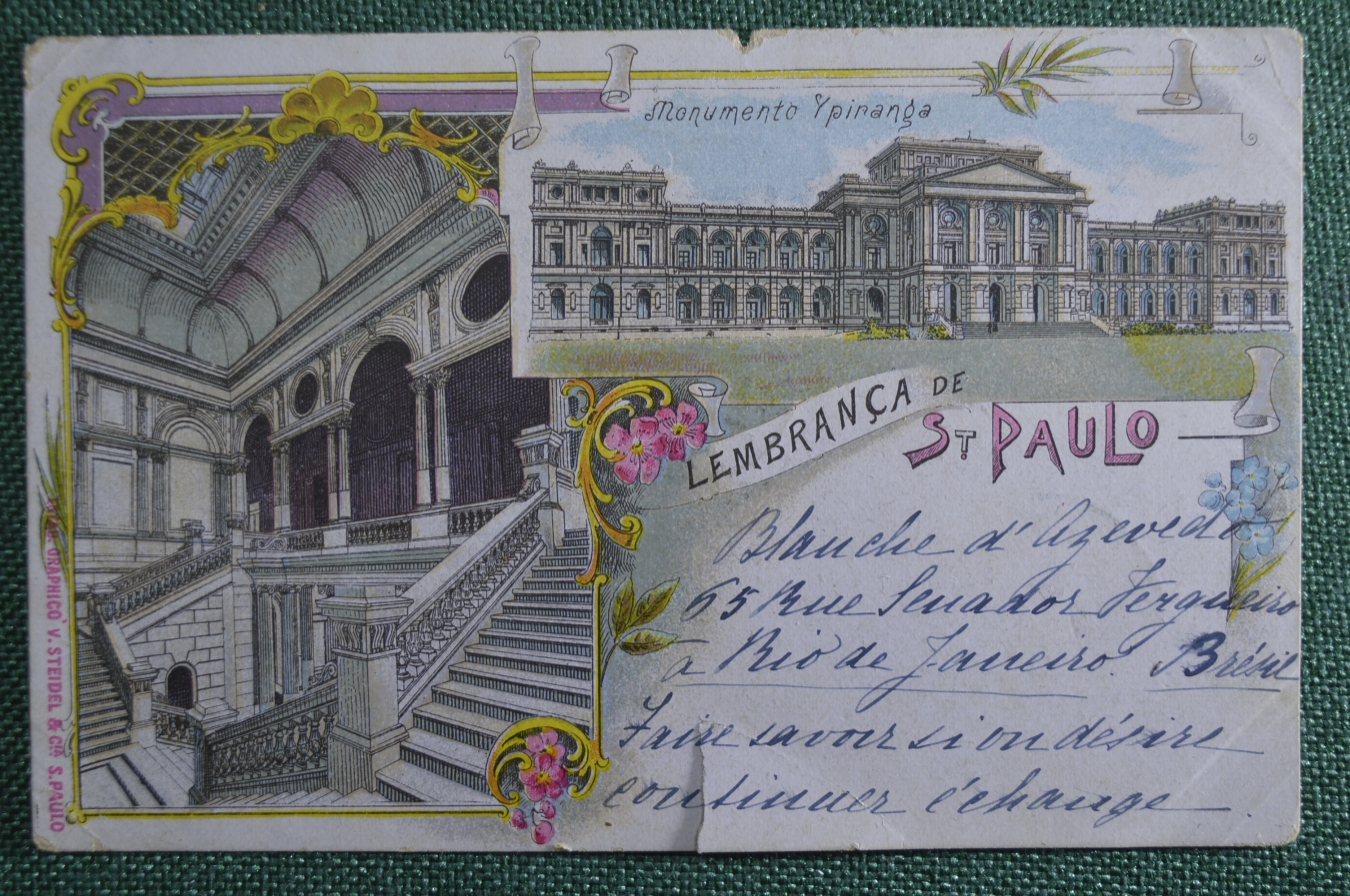 Monumento Ypiranga
LEMBRANÇA DE
ST PAULO
Blanche d'Azevedo
65 Rue Senador Vergueiro
à Rio de Janeiro. Brésil
Faire savoir si on désire
continuer l'échange
GRAPHICO V. STEIDEL & Cia S. PAULO